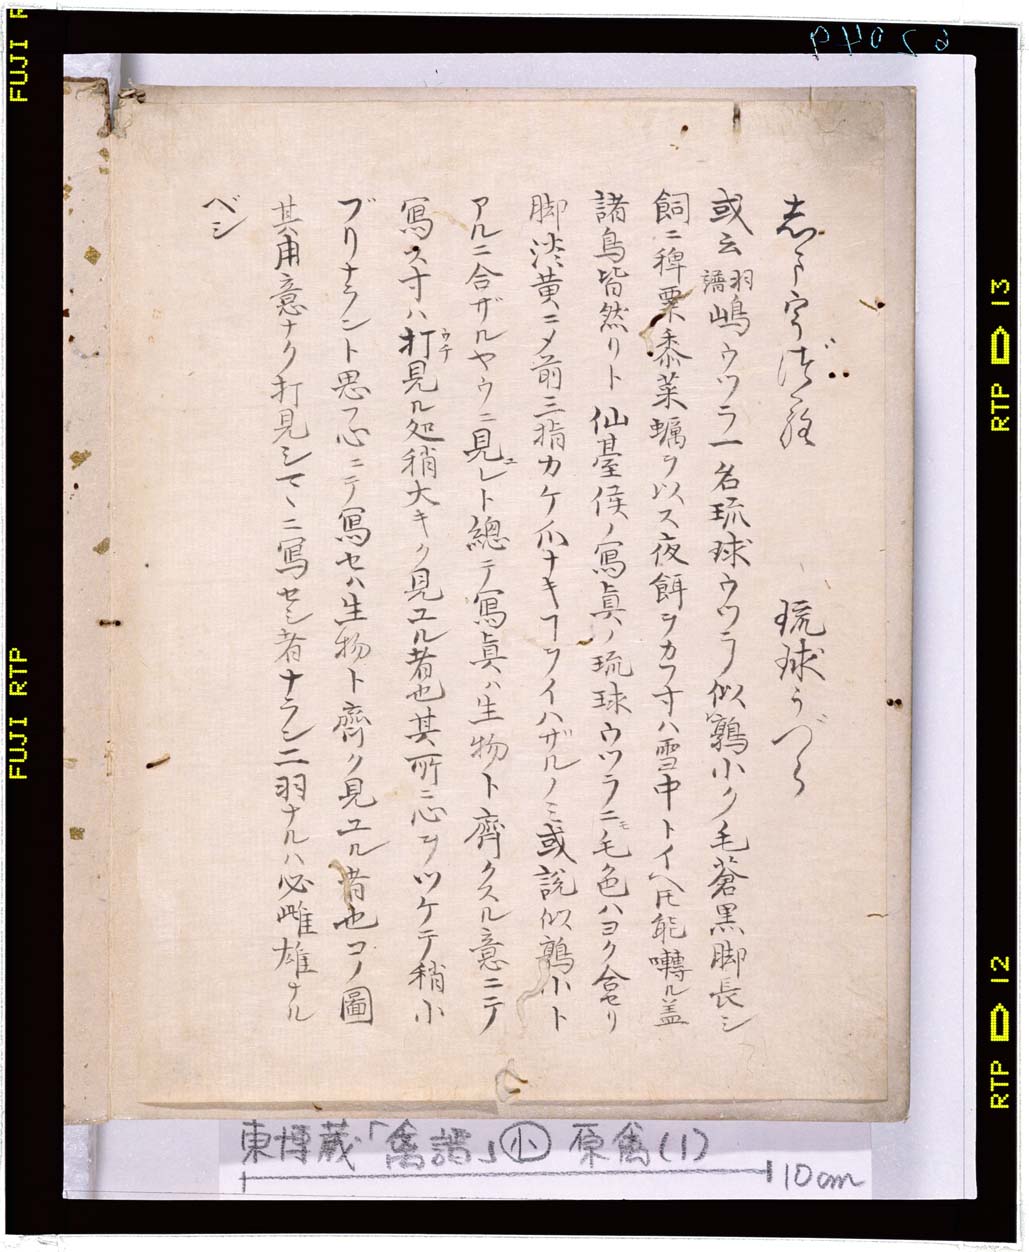 志まうづら　琉球うづら
或云羽譜嶋ウツラ一名琉球ウツラ似鶉小ク毛蒼黒脚長シ
飼ニ稗粟黍菜蠣ヲ以ス夜餌ヲカフ寸ハ雪中トイヘ𪜈能囀ル盖
諸鳥皆然リト　仙臺侯ノ寫眞ノ琉球ウツラニモ毛色ハヨク合セリ
脚淡黄ニメ前三指カケ爪ナキヿヲイハザルノミ或説似鶉小ト
アルニ合ザルヤウニ見ユレト總テ寫眞ハ生物ト齊クスル意ニテ
寫ス寸ハ打ウチ見ル処稍大キク見ユル者也其所ニ心ヲツケテ稍小
ブリナラント思フ心ニテ寫セハ生物ト齊ク見ユル者也コノ圖
其用意ナク打見シマヽニ寫セシ者ナラン二羽ナルハ必雌雄ナル
ベシ
東博蔵「禽譜」小 原禽(1)
10cm
FUJI RTP
RTP 13
RTP 12